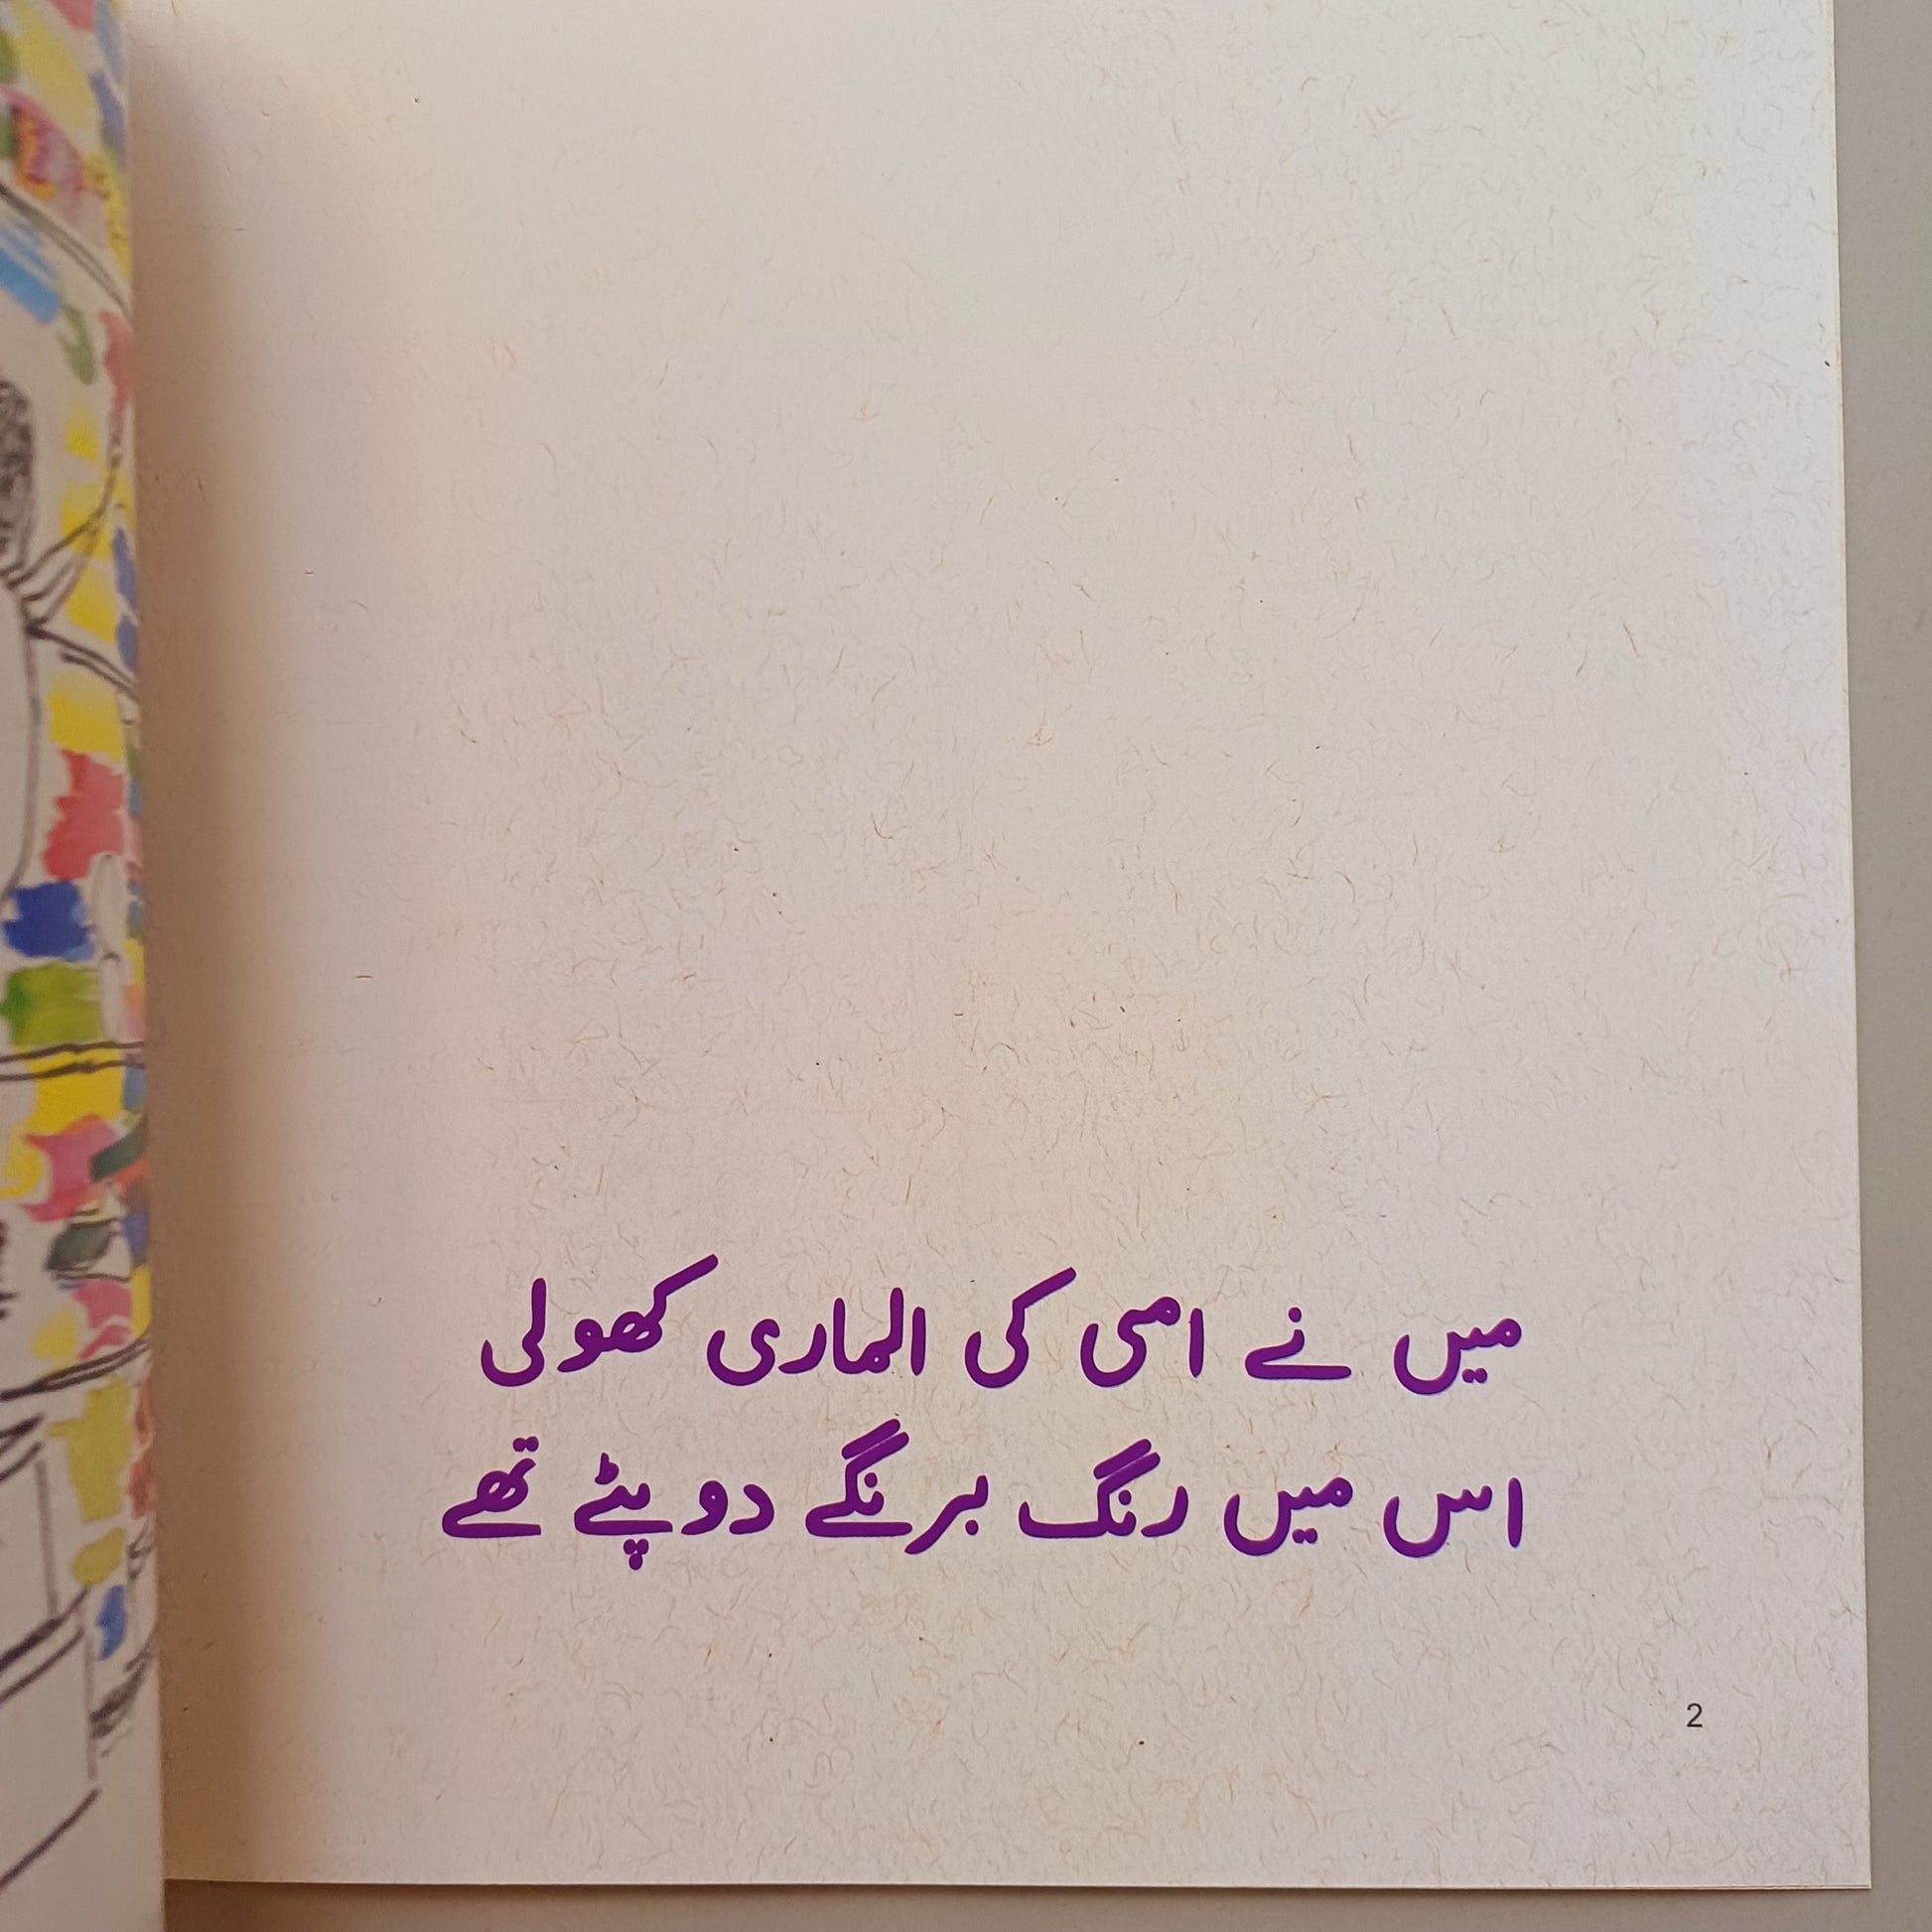 میں نے امی کی الماری کھولی
اس میں رنگ برنگے دوپٹے تھے
2